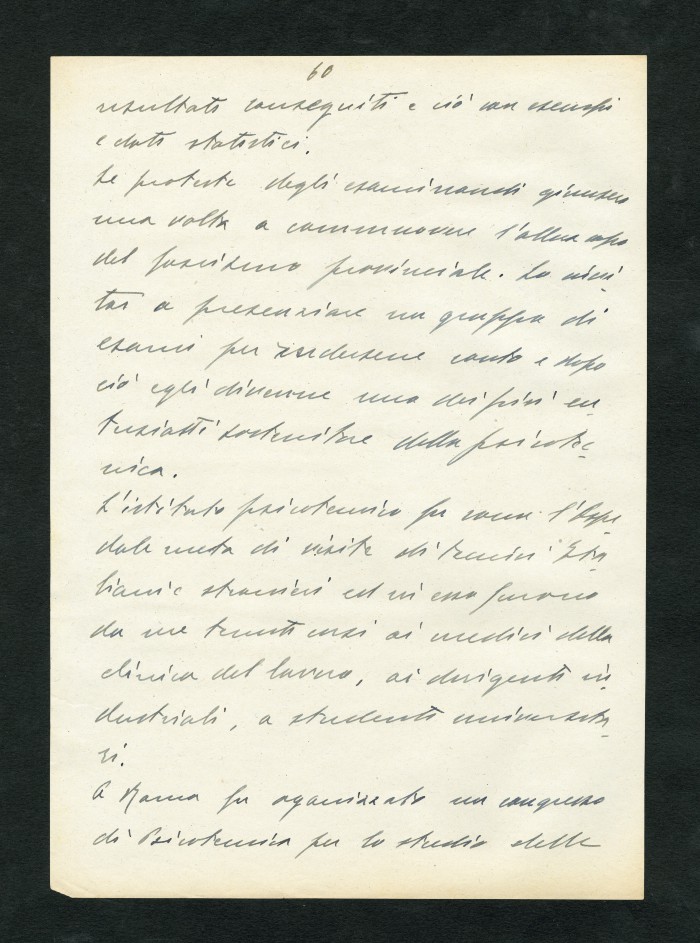 60
resultati conseguiti e ciò con esempi
e dati statistici.
Le proteste degli esaminandi giunsero
una volta a commuovere l'allora capo
del fascismo provinciale. Lo invi
tai a presenziare un gruppo di
esami per rendersene conto e dopo
ciò egli divenne uno dei più en
tusiasti sostenitore della psicotec
nica.
L'istituto psicotecnico fu come l'Ospe
dale meta di visite di tecnici Ita
liani e stranieri ed in esso furono
da me tenuti corsi ai medici della
clinica del lavoro, ai dirigenti in
dustriali, a studenti universita
ri.
A Roma fu oganizzato un congresso
di Psicotecnica per lo studio delle